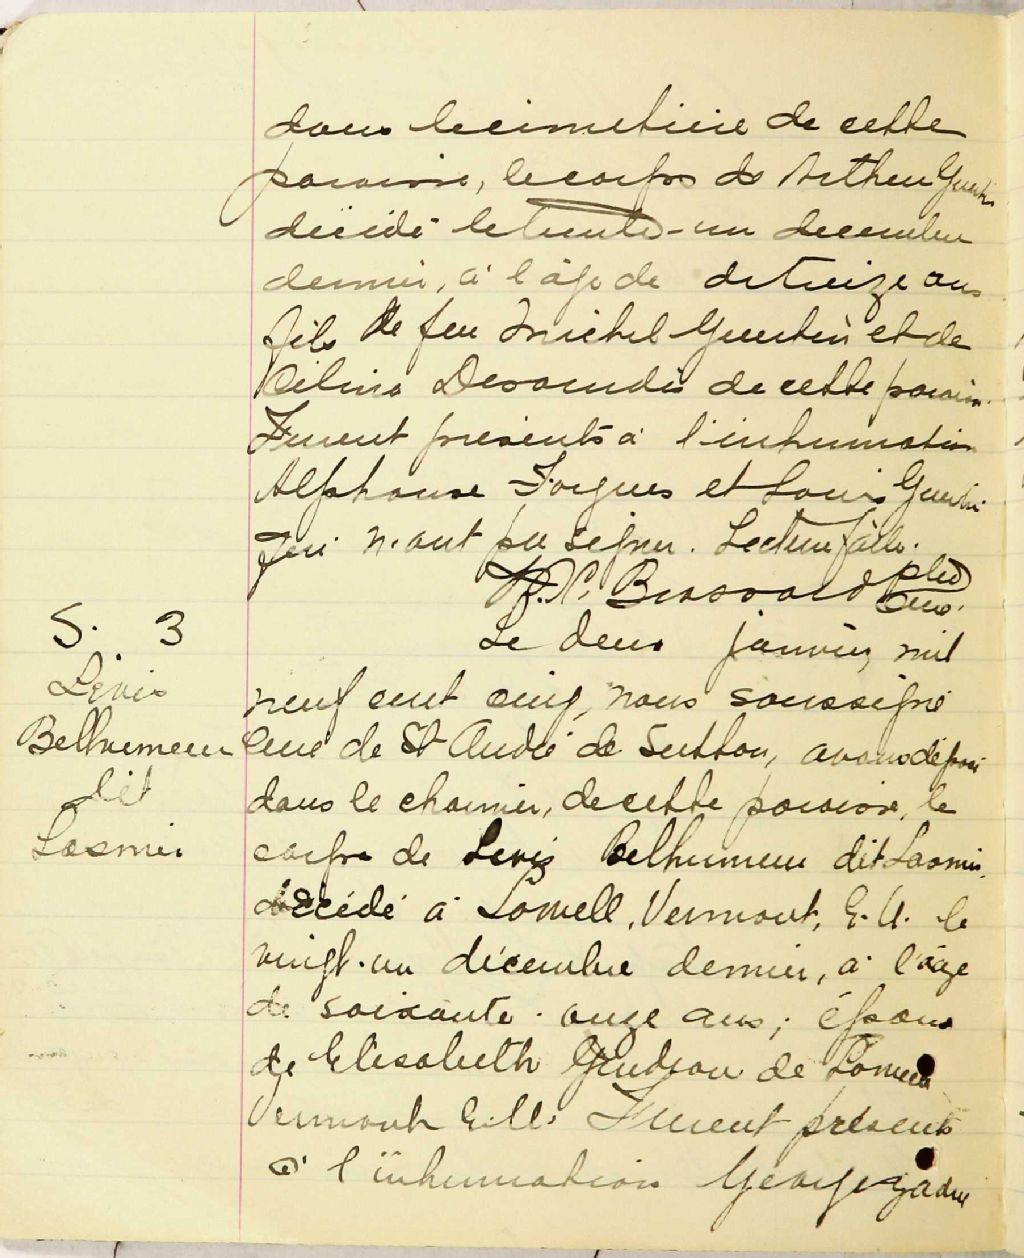 dans le cimetière de cette
paroisse, le corps de Arthur Guertin
décédé le trente-un decembre
dernier, à l'âge de de treize ans
fils de feu Michel Guertin et de
Célina Desaundis de cette paroisse.
Furent présents à l'inhumation
Alphonse Forgues et Louis Guertin
qui n'ont pu signer. Lecture faite.
Brassard ptre
curé.
Le deux janvier, mil
S. 3
neuf cent cinq, nous soussigné
Lévis
Belhumeur
dit
Lasmier
curé de St André de Sutton, avons déposé
dans le charnier, de cette paroisse, le
corps de Levis Belhumeur dit Lasmier,
décédé à Lowell, Vermont, E.U. le
vingt-un décembre dernier, à l'âge
de soixante-onze ans; époux
de Elisabeth de Lowell
Vermont E.U. Furent présents
à l'inhumation George